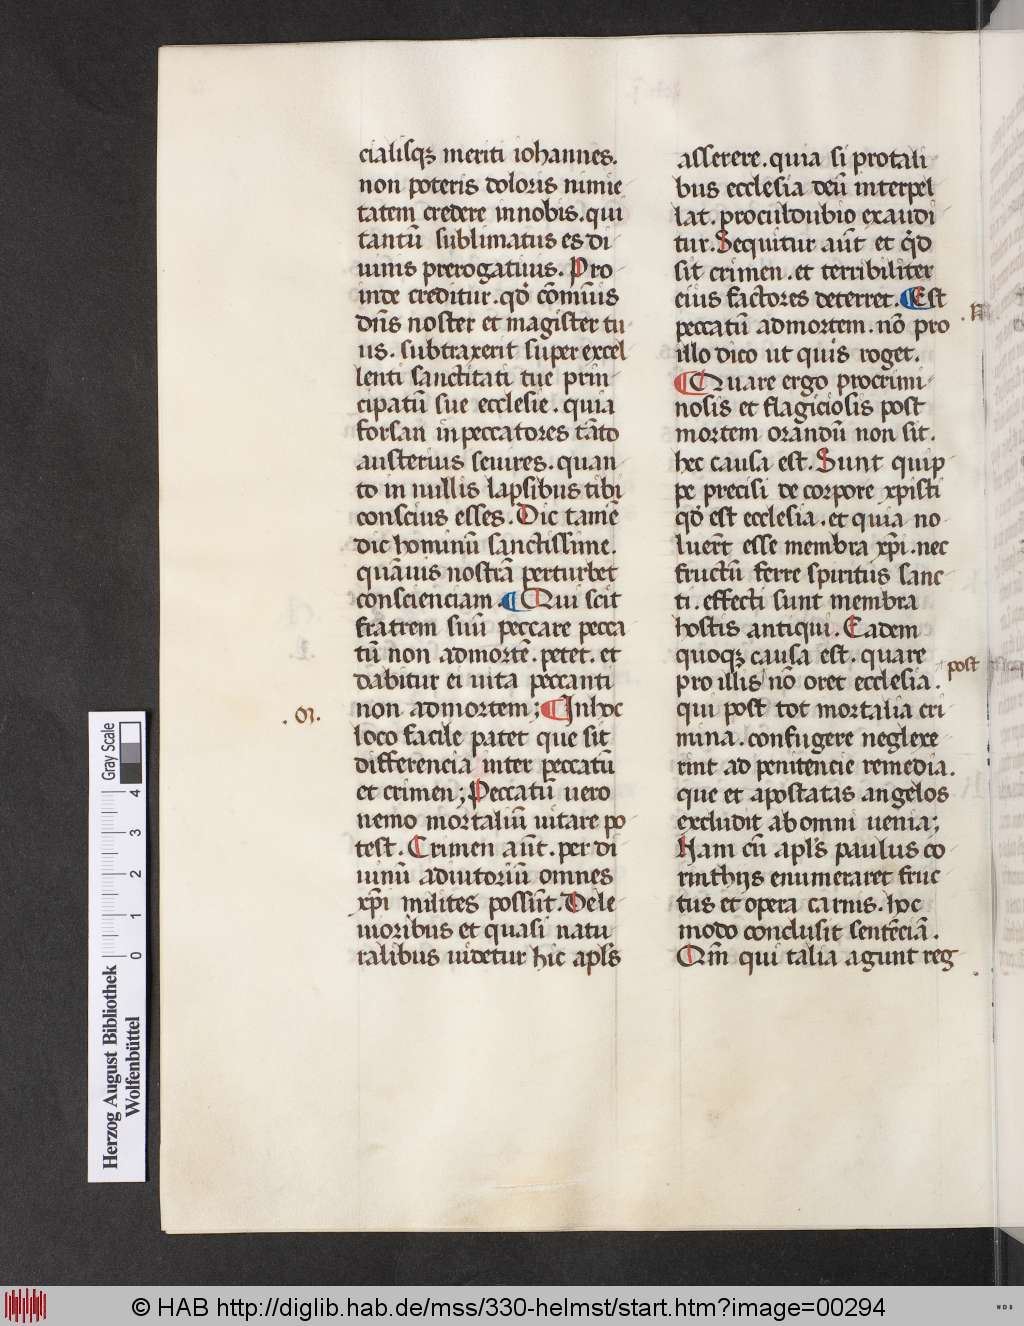 cialisqꝫ meriti iohannes.
non poteris doloris nimie
tatem credere in nobis. qui
tantū sublimatus es di
uinis prerogatiuis. Pro
inde creditur. qd̓ cōmūis
dn̄s noster et magister tu
us. subtraxerit super excel
lenti sanctitati tue prin
cipatū sue ecclesie. quia
forsan in peccatores tāto
austerius seuires. quan
to in nullis lapsibus tibi
conscius esses. Dic tamē
dic hominū sanctissime.
quāuis nostrā perturbet
conscienciam. ¶ Qui scit
fratrem suū peccare pecca
tū non ad mortē. petet. et
dabitur ei uita peccanti
non ad mortem; ¶ In hoc
loco facile patet que sit
differencia inter peccatū
et crimen; Peccatū uero
nemo mortaliū uitare po
test. Crimen aūt. per di
uinū adiutoriū omnes
xp̄i milites possūt. De le
uioribus et quasi natu
ralibus uidetur hic apl̓s
asserere. quia si pro tali
bus ecclesia deū interpel
lat. procul dubio exaudi
tur. Sequitur aūt et q̓d
sit crimen. et terribiliter
eius factores deterret. ¶ Est
peccatū ad mortem. nō pro
illo dico ut quis roget.
¶ Quare ergo pro crimi
nosis et flagiciosis post
mortem orandū non sit.
hec causa est. Sunt quip
pe precisi de corpore xpisti
qd̓ est ecclesia. et quia no
luer̄t esse membra xp̄i. nec
fructū ferre spiritus sanc
ti. effecti sunt membra
hostis antiqui. Eadem
quoqꝫ causa est. quare
post
pro illis nō oret ecclesia.
qui post tot mortalia cri
mina. confugere neglexe
rint ad penitencie remedia.
que et apostatas angelos
excludit ab omni uenia;
Nam cū apl̓s paulus co
rinthijs enumeraret fruc
tus et opera carnis. hoc
modo conclusit sentēciā.
Qm̄ qui talia agunt reg
Herzog August Bibliothek
Wolfenbüttel
0 1 2 3 4
Gray Scale
© HAB http://diglib.hab.de/mss/330-helmst/start.htm?image=00294